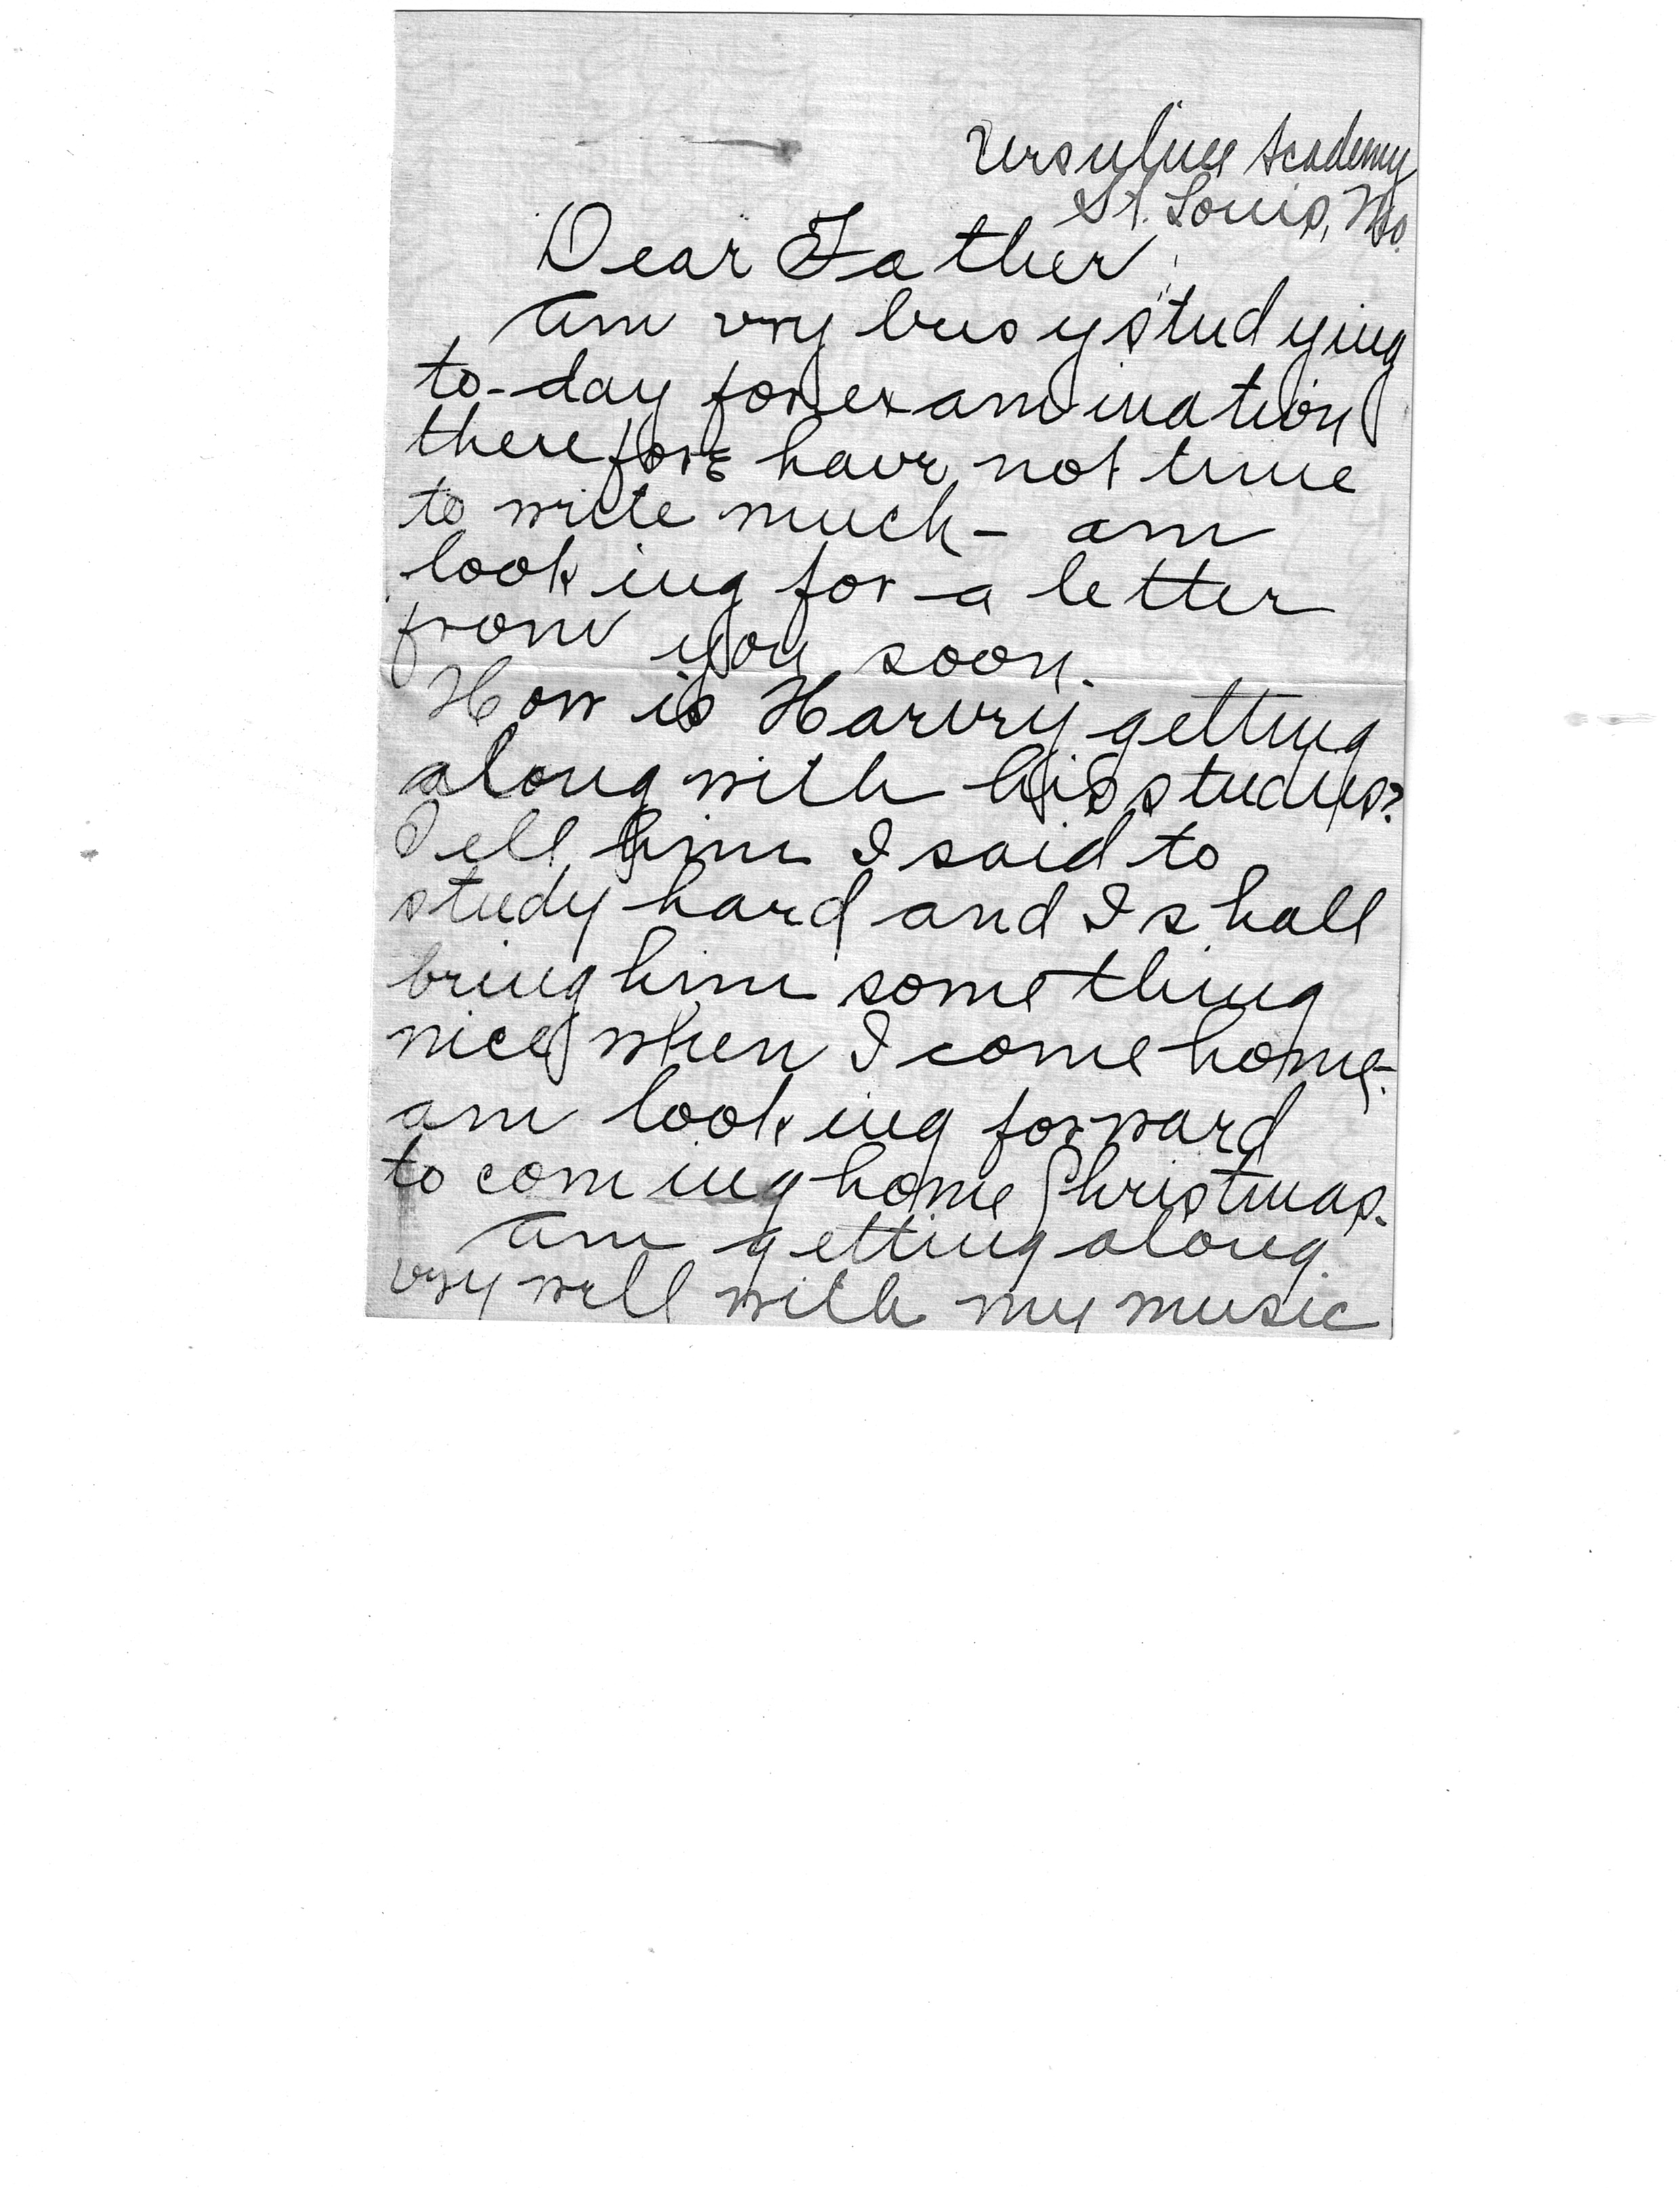 Ursuline Academy
St. Louis, Mo.
Dear Father,
Am very busy studying
to-day for examination
therefore have not time
to write much - am
looking for a letter
from you soon.
How is Harvey getting
along with his studies?
Tell him I said to
study hard and I shall
bring him something
nice when I come home.
am looking forward
to coming home Christmas.
Am getting along
very well with my music